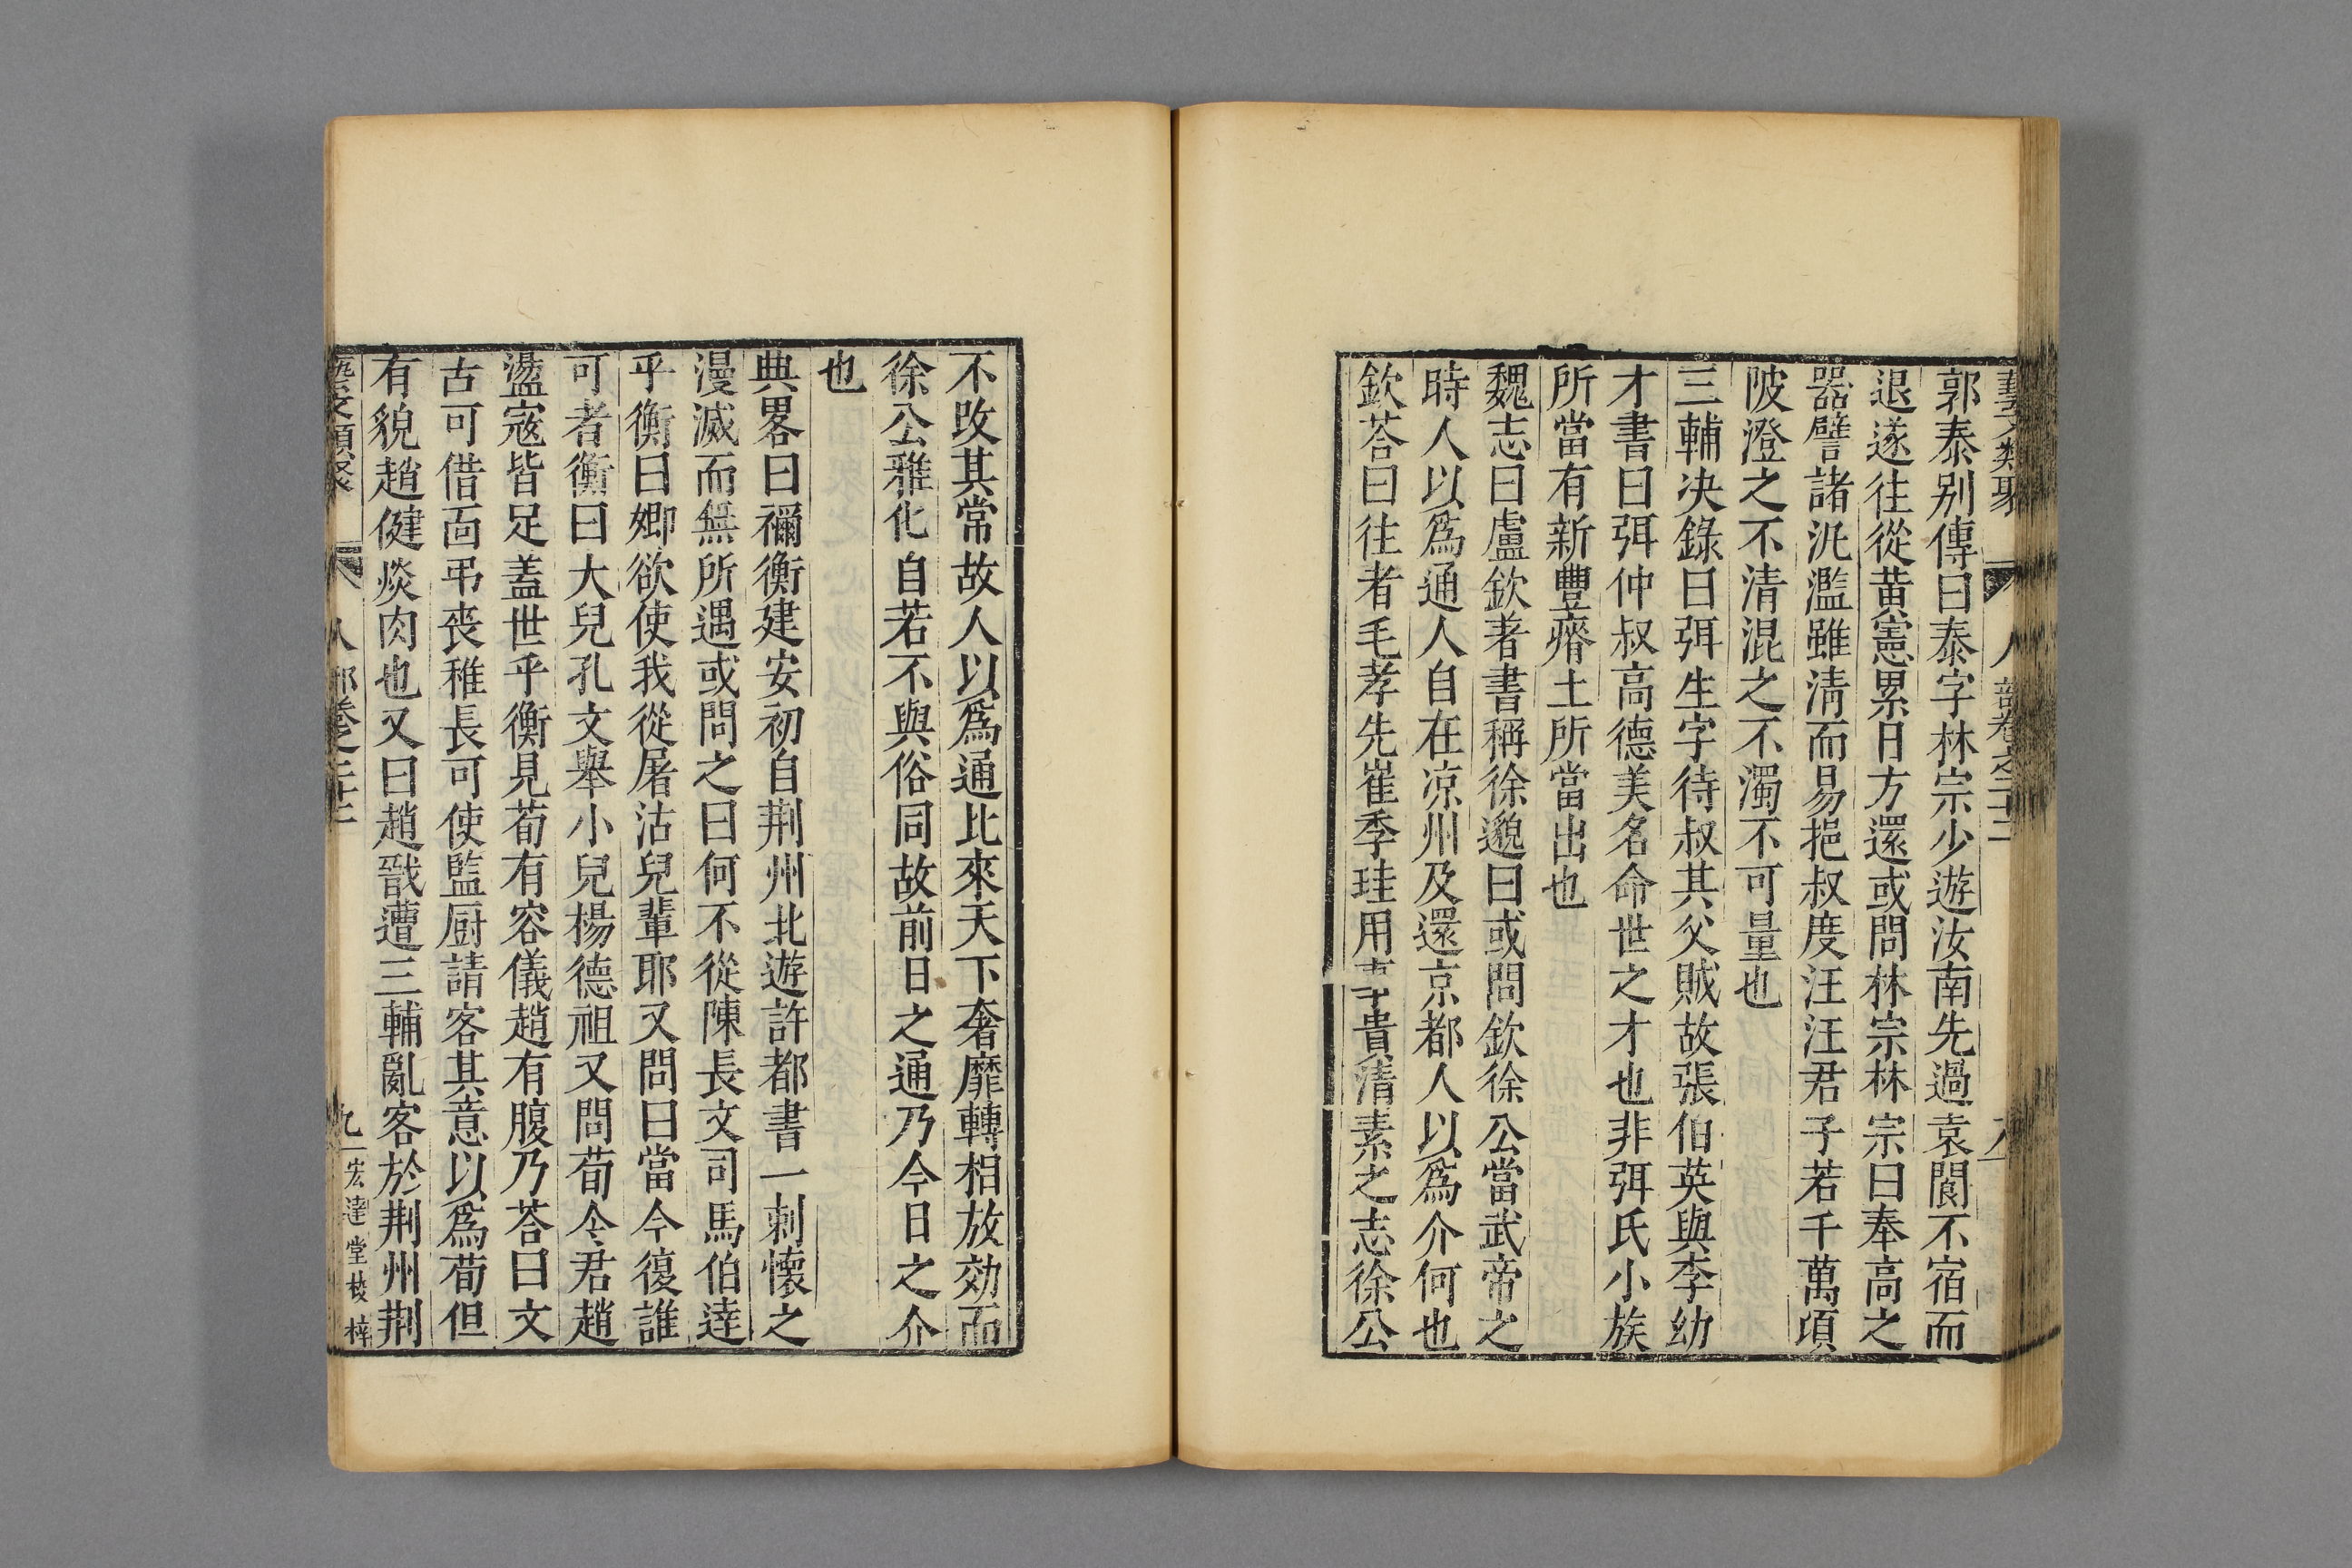 藝文類聚 人部卷之二十二 八
郭泰别傳曰泰字林宗少遊汝南先過袁閬不宿而
退遂往從黄憲累日方還或問林宗林宗曰奉高之
器譬諸汎濫雖清而易挹叔度汪汪君子若千萬頃
陂澄之不清混之不濁不可量也
三輔决錄曰弭生字待叔其父賊故張伯英與李幼
才書曰弭仲叔高德美名命世之才也非弭氏小族
所當有新豐瘠土所當出也
魏志曰盧欽著書稱徐邈曰或問欽徐公當武帝之
時人以爲通人自在凉州及還京都人以爲介何也
欽荅曰往者毛孝先崔季珪用事貴清素之志徐公
不改其常故人以爲通比來天下奢靡轉相放効而
徐公雅化自若不與俗同故前日之通乃今日之介
也
典畧曰禰衡建安初自荆州北遊許都書一刺懷之
漫滅而無所遇或問之曰何不從陳長文司馬伯達
乎衡曰卿欲使我從屠沽兒輩耶又問曰當今復誰
可者衡曰大兒孔文舉小兒楊德祖又問荀令君趙
盪寇皆足蓋世乎衡見荀有容儀趙有腹乃荅曰文
古可借靣弔丧稚長可使監厨請客其意以爲荀但
有貌趙健燄肉也又曰趙戩遭三輔亂客於荆州荆
藝文類聚 人部卷之二十二 九 宏達堂校梓